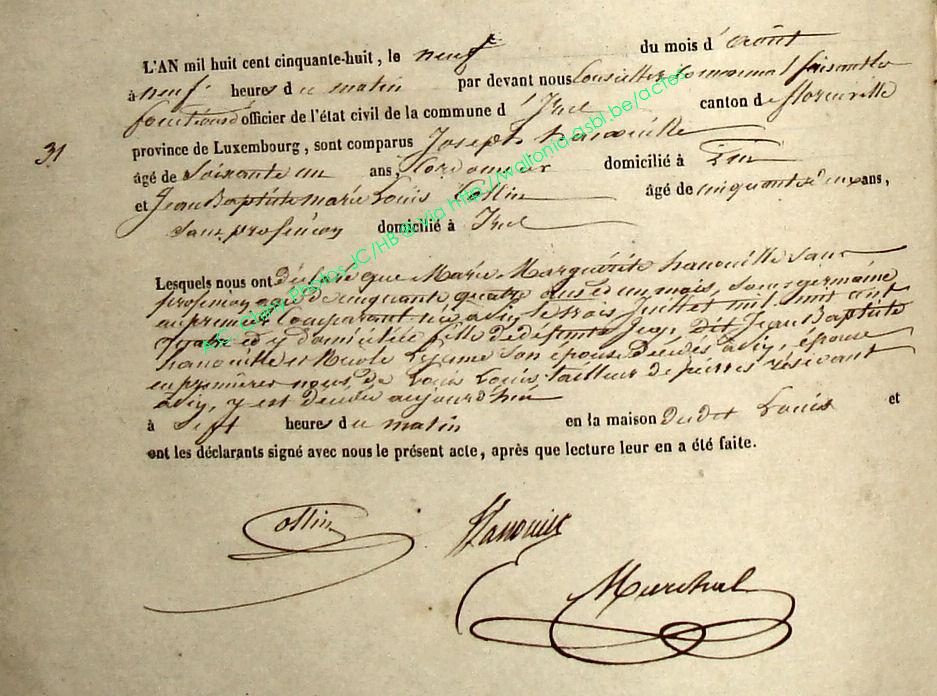 L'AN mil huit cent cinquante-huit, le neuf du mois d'août
à neuf heures du matin par devant nous Conseiller Communal faisant les
fonctions d'officier de l'état civil de la commune d' canton de florenville
31
province de Luxembourg, sont comparus Joseph hanouille
âgé de Soixante un ans, Cordonnier domicilié à
et Jean Baptiste marie Louis Collin âgé de cinquante deux ans,
Sans profession domicilié à
Lesquels nous ont déclaré que Marie Marguerite hanouille Sans
profession agée de cinquante quatre ans et un mois, Soeur germaine
au premier Comparant née à le trois Juillet mil huit cent
quatre et y domiciliée fille de défunts Jean dit Jean Baptiste
hanouille et Son épouse décédés à épouse
en premières noces de Louis Louis tailleur de pierres résidant
à y est décédée aujourd'hui
à Sept heures du matin en la maison dudit Louis et
ont les déclarants signé avec nous le présent acte, après que lecture leur en a été faite.
Collin Hanouille
Marchal
A.E. Photos JC/HB @ via http://wallonia-asbl.be/actes